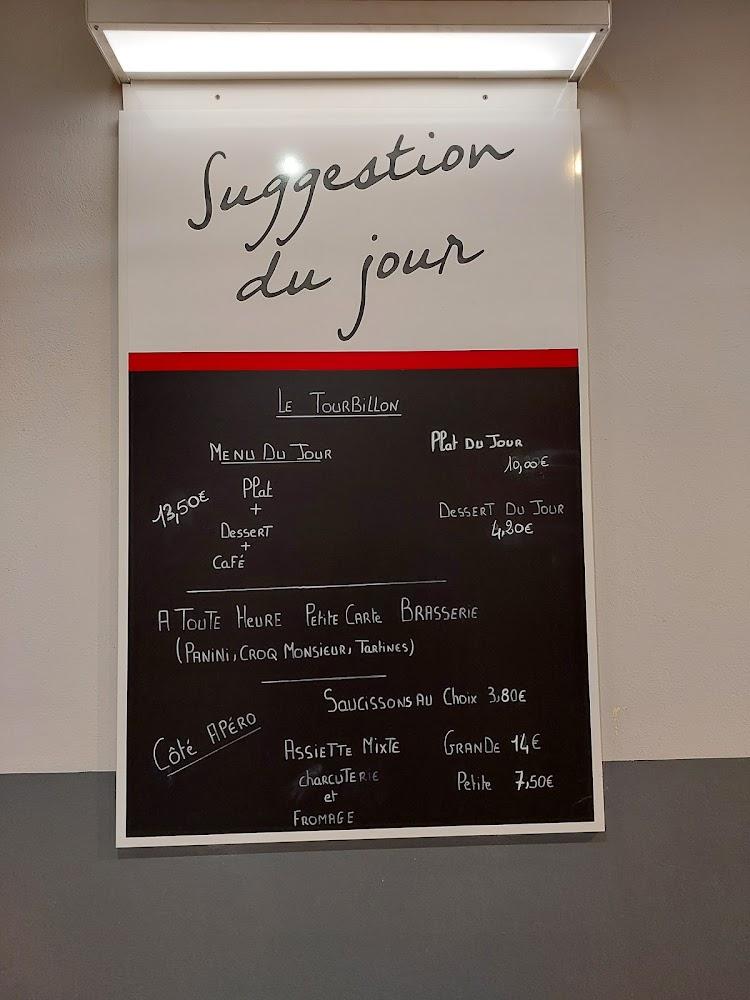 Suggestion
du jour
LE TOURBILLON
MENU DU JOUR
13,50€
Plat
+
DESSERT
+
CAFÉ
Plat DU JOUR
10,00€
DESSERT DU JOUR
4,20€
A TOUTE HEURE PETITE CARTE BRASSERIE
(PANINI, CROQ MONSIEUR, TARTINES)
CÔTÉ APÉRO
SAUCISSONS AU CHOIX 3,80€
ASSIETTE MIXTE
CHARCUTERIE
et
FROMAGE
GRANDE 14€
Petite 7,50€